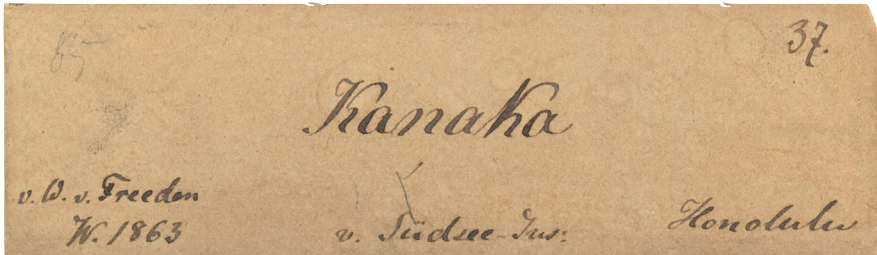 85
37.
Kanaka
v. W. v. Freeden
W. 1863
v. Südsee-Ins:
Honolulu